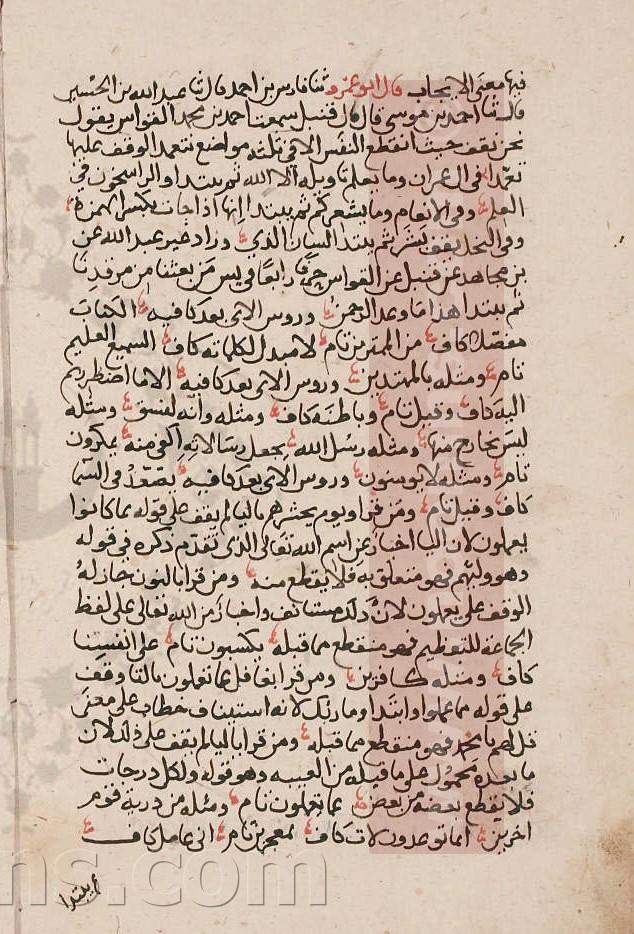 فيها معنى الايجاب قال ابو عمرو ثنا فارس بن احمد قال ثنا عبد الله بن الحسين
قال ثنا احمد بن موسى قال قال قنبل سمعنا احمد بن محمد القواس يقول
نحن نقف حيث انقطع النفس الا في ثلثة مواضع نتعمد الوقف عليها
تعمدا في ال عمران وما يعلم تاويله الا الله ثم يبتدا والراسخون في
العلم وفى الانعام وما يشعركم ثم يبتدا انها اذا جات بكسر الهمزة
وفى النحل يقف بشر ثم يبتدا لسان الذي وزاد غير عبد الله عن
بن مجاهد عن قنبل عن القواس حرفا رابعا في يس من بعثنا من مرقدنا
ثم يبتدا هذا ما وعد الرحمن وروس الاى بعد كافية الكتاب
مفصلا كاف من الممترين تام لا مبدل لكلماته كاف السميع العليم
تام ومثله بالمهتدين وروس الاى بعد كافية الا ما اضطررتم
اليه كاف وقيل تام وباطنه كاف ومثله وانه لفسق ومثله
ليس بخارج منها ومثله رسل الله يجعل رسالاته اكفى منه يمكرون
تام ومثله لا يومنون وروس الاى بعد كافية يصعد في السما
كاف وقيل تام ومن قرا ويوم يحشرهم باليا لم يقف على قوله بما كانوا
يعملون لان اليا اخبار عن اسم الله تعالى الذى تقدم ذكره في قوله
وهو وليهم فهو متعلق به فلا يقطع منه ومن قرا بالنون جاز له
الوقف على يعملون لان ذلك مستانف واخبار من الله تعالى على لفظ
الجماعة للتعظيم فهو منقطع مما قبله يكسبون تام على انفسنا
كاف ومثله كافرين ومن قرا بغافل عما تعملون بالتا وقف
على قوله مما عملوا وابتدا وما ربك لانه استيناف خطاب على معنى
قل لهم يا محمد فهو منقطع مما قبله ومن قرا باليا لم يقف على ذلك لان
ما بعده محمول على ما قبله من الغيبه وهو قوله ولكل درجات
فلا يقطع بعضه من بعض عما تعملون تام ومثله من ذرية قوم
اخرين انما توعدون لات كاف بمعجزين تام انى عامل كاف
يبتدا
ns.com